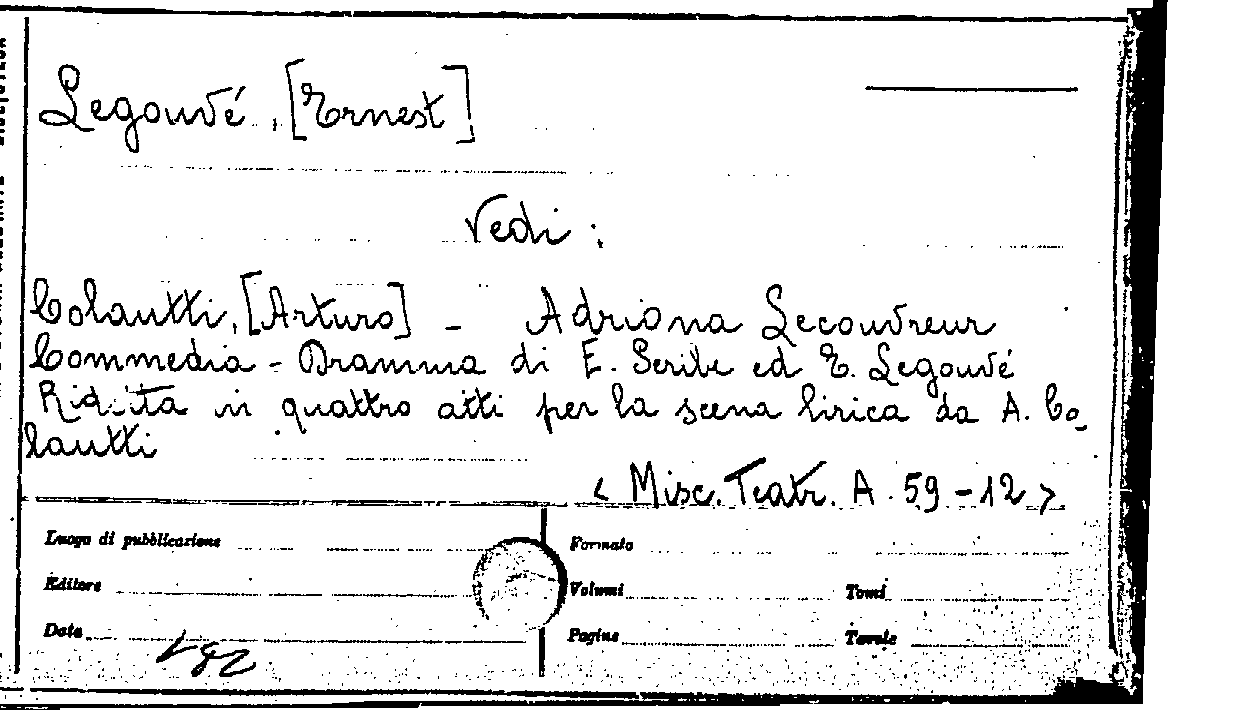 Legouvé, [Ernest]
Vedi:
Colautti, [Arturo] - Adriana Lecouvreur
Commedia-Dramma di E. Scribe ed E. Legouvé
Ridotta in quattro atti per la scena lirica da A. Co_
lautti
< Misc. Teatr. A. 59-12 >
Luogo di pubblicazione
Formato
Editore
Volumi
Tomi
Data
Pagine
Tavole